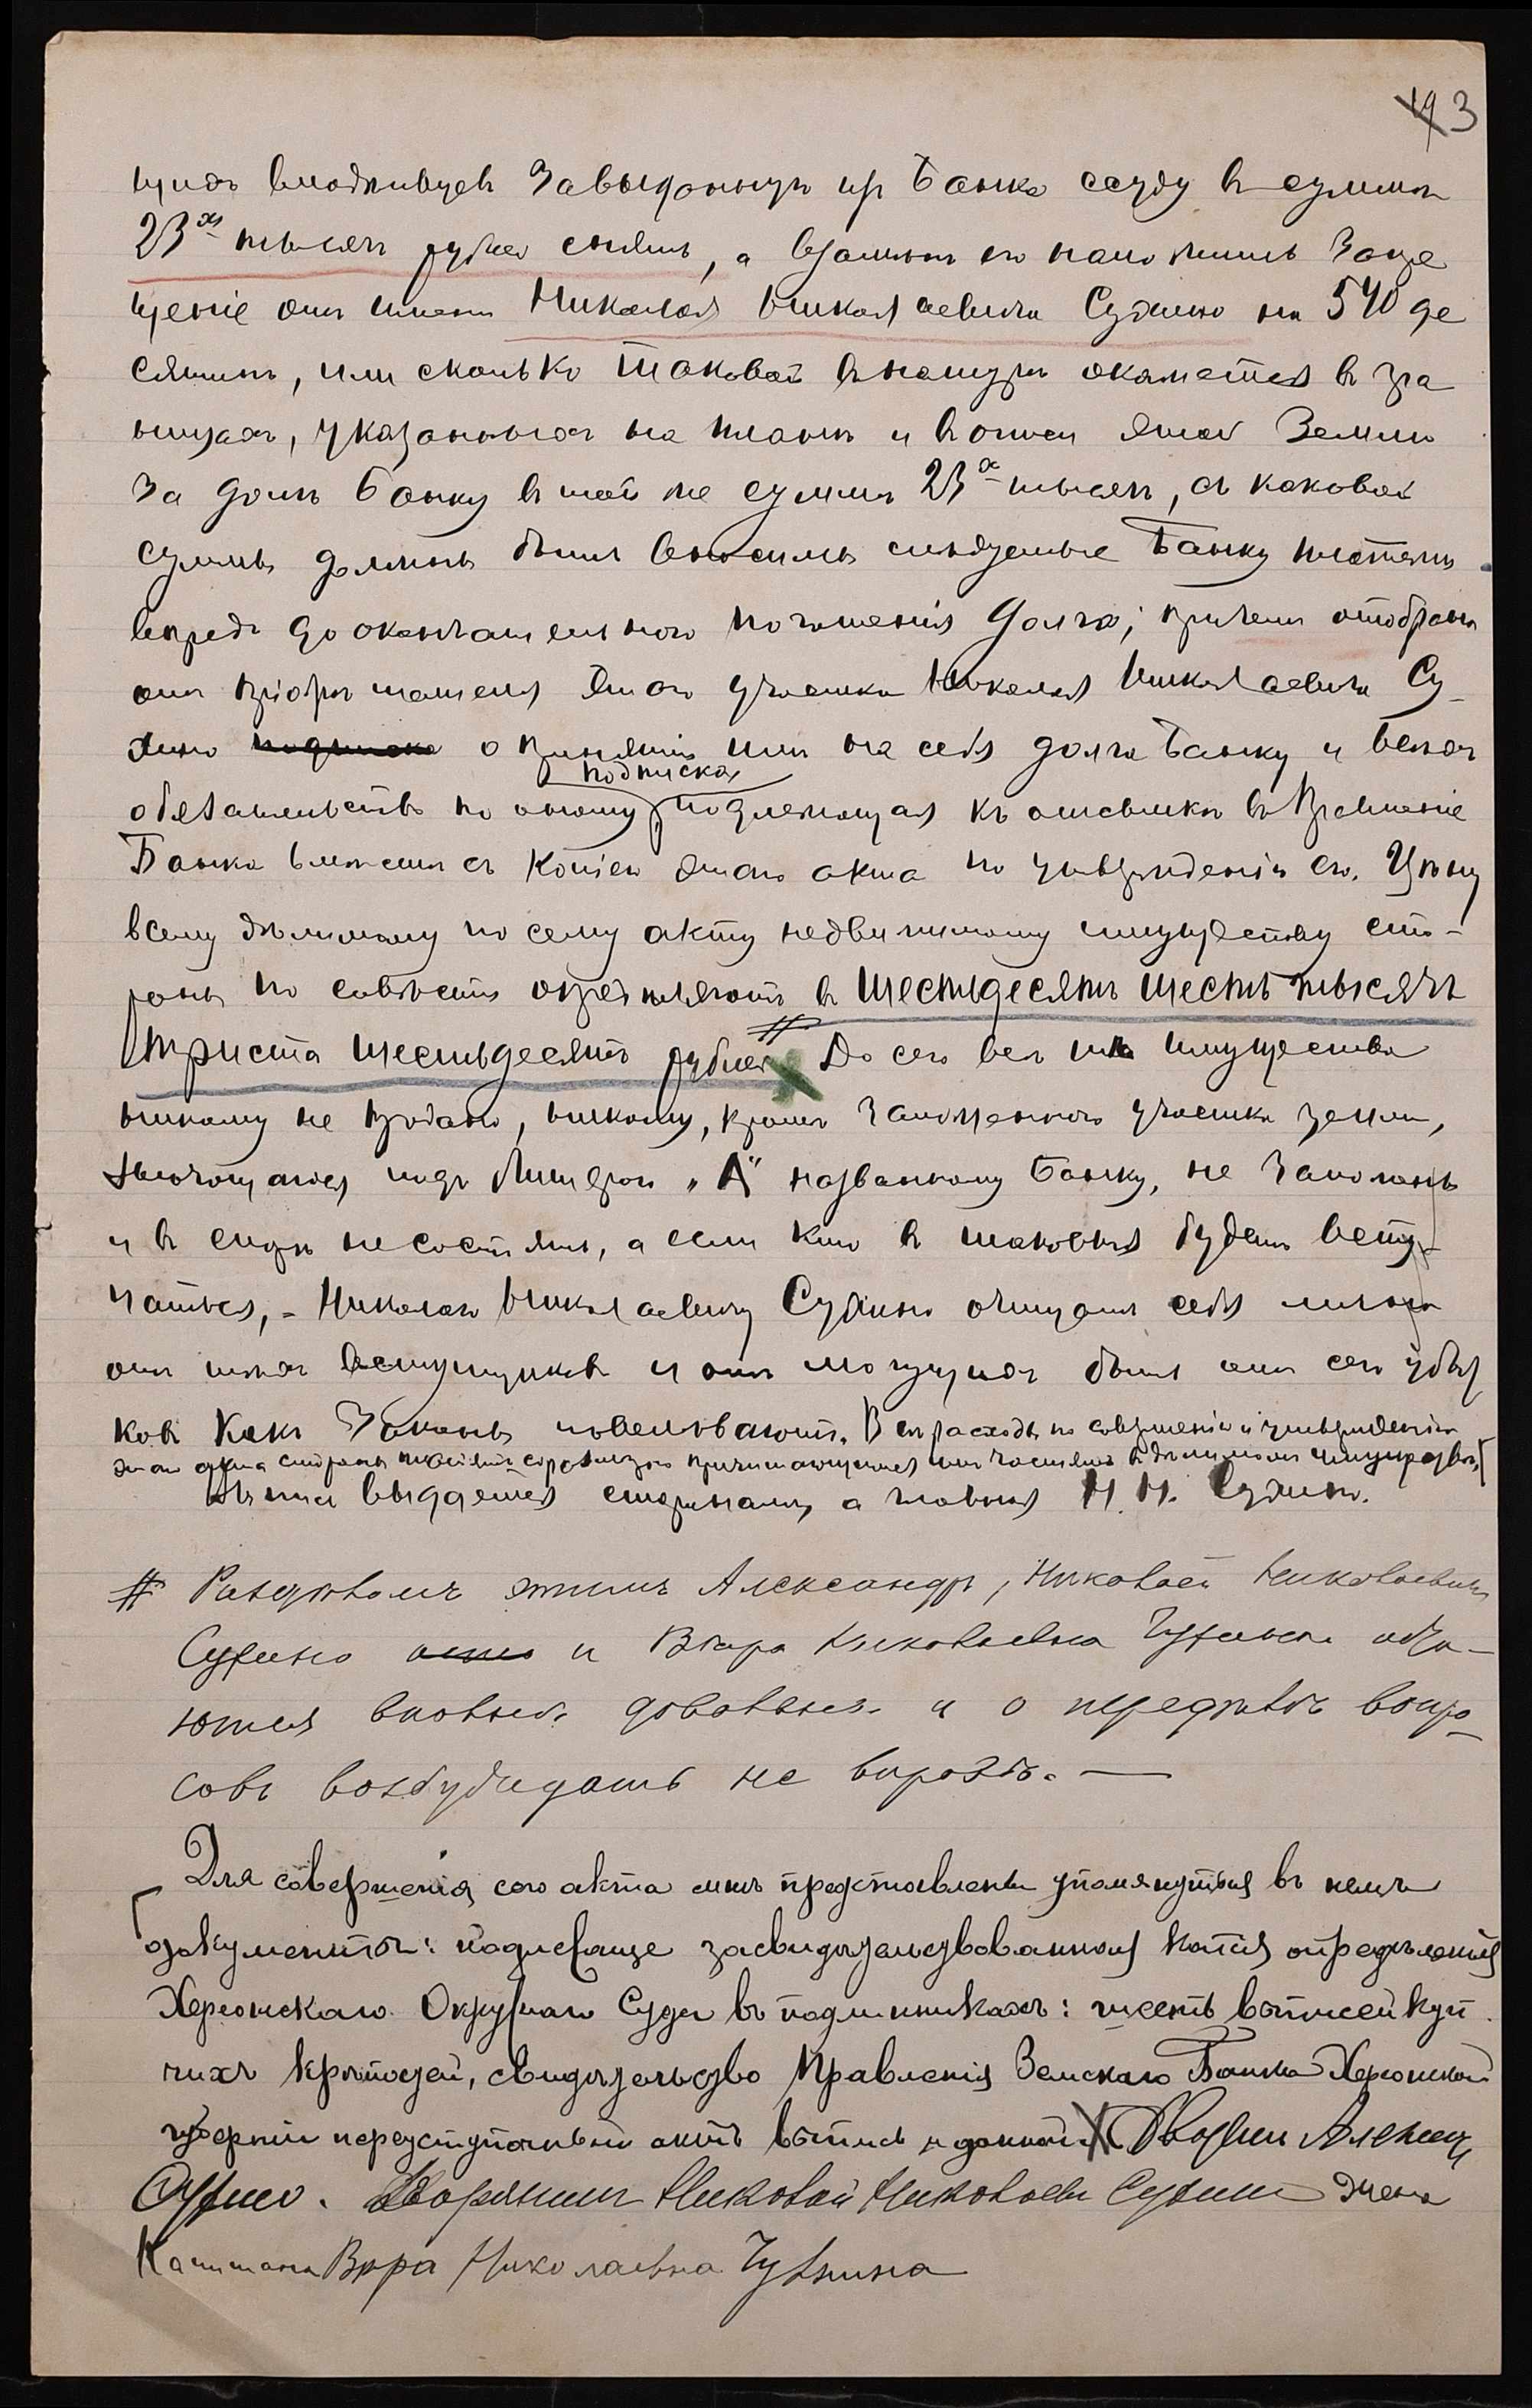 19 3
щихъ владѣльцевъ за выданную изъ Банка ссуду въ суммѣ
23хъ тысячъ рублей снять, а взамѣнъ его наложить запре
щеніе отъ имени Николая Николаевича Сухино на 540 де
сятинъ, или сколько таковой въ натурѣ окажется въ гра
ницахъ, указанныхъ на планѣ и въ описи этой земли
за долгъ Банку въ той же суммѣ 23х тысячъ, съ каковой
суммы должны быть вносимы слѣдуемые Банку платежи
впредь до окончательнаго погашенія долга; причемъ отобрана
отъ пріобрѣтателя этого участка Николая Николаевича Су-
хино подписка о принятіи имъ на себя долга Банку и всѣхъ
подписка,
обязательствъ по оному, подлежащая къ отсылкѣ въ Правленіе
Банка вмѣстѣ съ копіею этого акта по утвержденіи его. Цѣну
всему дѣлимому по сему акту недвижимому имуществу сто-
роны по совѣсти опредѣляютъ въ шестьдесятъ шесть тысячъ
триста шестьдесятъ рублей # До сего все имущество
никому не продано, никому, кромѣ заложеннаго участка земли,
значущагося подъ литерою „А" названному Банку, не заложено
и въ спорѣ не состоитъ, а если кто въ таковыя будетъ всту-
паться, - Николаю Николаевичу Сухино очищать себя
отъ тѣхъ вступщиковъ и отъ могущихъ быть отъ сего убыт
ковъ какъ законы повелѣваютъ. Всѣ расходы по совершенію и утвержденію
этого акта стороны соразмѣрно причитающимся имъ частямъ въ дѣлимомъ имуществѣ
выдается сторонамъ, а главная Н. Н. Сухино.
# Раздѣломъ этимъ Александръ, Николай Николаевичи
Сухино и Вѣра Николаевна
ются вполнѣ довольны и о передѣлѣ вопро-
совъ возбуждать не вправѣ. —
Для совершенія сего акта мнѣ представлены упомянутыя въ немъ
документы: надлежаще засвидѣтельствованная копія опредѣленія
Херсонскаго Окружнаго Суда въ подлинникахъ: шесть выписей куп
чихъ крѣпостей, свидѣтельство Правленія Земскаго Банка Херсонской
губерніи переуступочный актъ выпись и данной
Сухино. Дворянинъ Николай Николаевъ Сухино Жена
Капитана Вѣра Николаевна